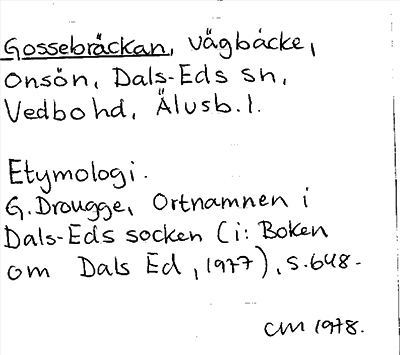 Gossebräckan, vägbacke,
Onsön, Dals-Eds sn,
Vedbo hd, Älvsb. l.
Etymologi.
G. Drougge, Ortnamnen i
Dals-Eds socken (i: Boken
om Dals Ed, 1977), s. 648.
CM 1978.